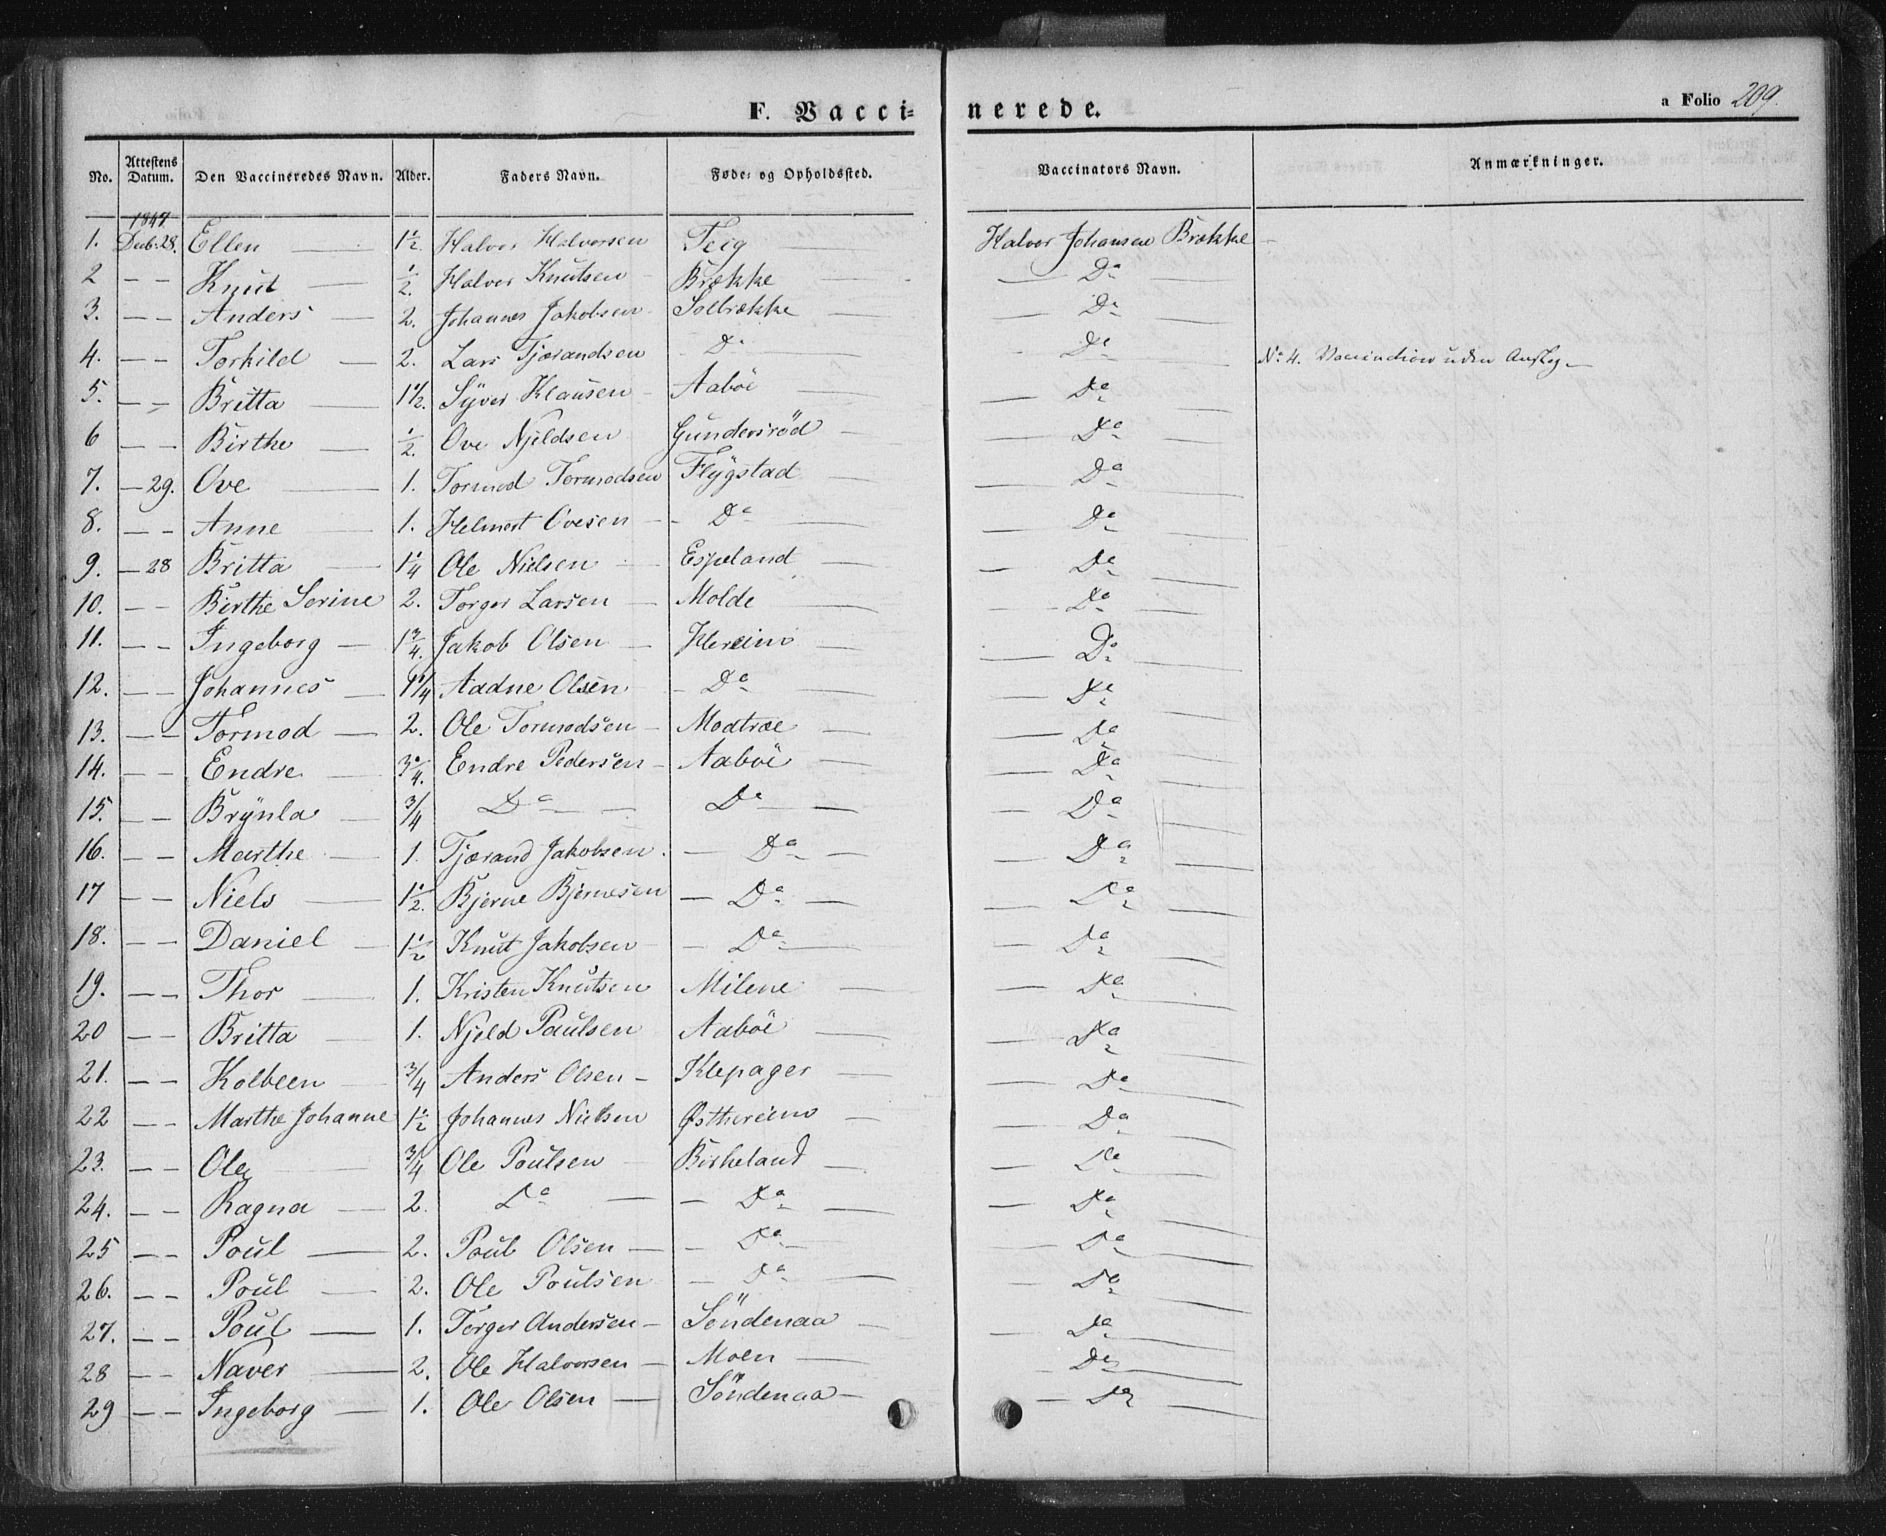 F. Vaccinerede.
a Folio 209.
No. | Attestens Datum. | Den Vaccineredes Navn. | Alder. | Faders Navn. | Føde- og Opholdssted. | Vaccinators Navn. | Anmærkninger.
1847
1. Decb. 28. Ellen — 1 1/2 Halvor Halvorsen Teig — Halvor Johansen Brække —
2 — — Knut — 1/2. Halvor Knutsen Brække — Do —
3. — — Anders — 2. Johannes Jakobsen Solbrække — Do —
4. — — Torkild — 2. Lars Tjærandsen Do — Do — No 4. uden
5. — — Britta — 1 1/2. Syver Klausen Aaböe — Do —
6 — — Birthe — 1/2. Ove Njeldsen Gundersröd — Do —
7. — 29. Ove — 1. Tormod Tormodsen Flygstad — Do —
8. — — Anne — 1. Helmert Ovesen — Do — Do —
9. — 28 Britta — 1 1/4 Ole Nielsen — Espeland — Do —
10. — — Birthe Serine 2. Torger Larsen — Molde — Do —
11. — — Ingeborg — 1 3/4. Jakob Olsen — Hereim — Do —
12. — — Johannes — 1 1/4 Aadne Olsen — Do — Do —
13. — — Tormod — 2. Ole Tormodsen — Modtræ — Do —
14. — — Endre — 3/4. Endre Pedersen — Aaböe — Do —
15. — — Brynla — 3/4 Do — Do — Do —
16. — — Marthe — 1. Tjærand Jakobsen. — Do — Do —
17 — — Niels — 1 1/2. Bjerne Bjernesen — Do — Do —
18. — — Daniel — 1 1/2 Knut Jakobsen — Do — Do —
19. — — Thor — 1. Kristen Knutsen Milene — Do —
20 — — Britta — 1. Njeld Paulsen Aaböe — Do —
21. — — Kolbeen — 3/4 Anders Olsen — Klepager — Do —
22 — — Marthe Johanne 1 1/2 Johannes Nielsen Østhereim — Do —
23. — — Ole — 3/4 Ole Poulsen Birkeland — Do —
24. — — Ragna — 2. Do — — Do — Do —
25 — — Poul — 2. Poul Olsen — — Do — Do —
26. — — Poul — 2. Ole Poulsen — Do — Do —
27. — — Poul — 1. Torger Andersen — Söndenaa — Do —
28 — — Naver — 2. Ole Halvorsen — Moen — Do —
29 — — Ingeborg — 1. Ole Olsen — Söndenaa — Do